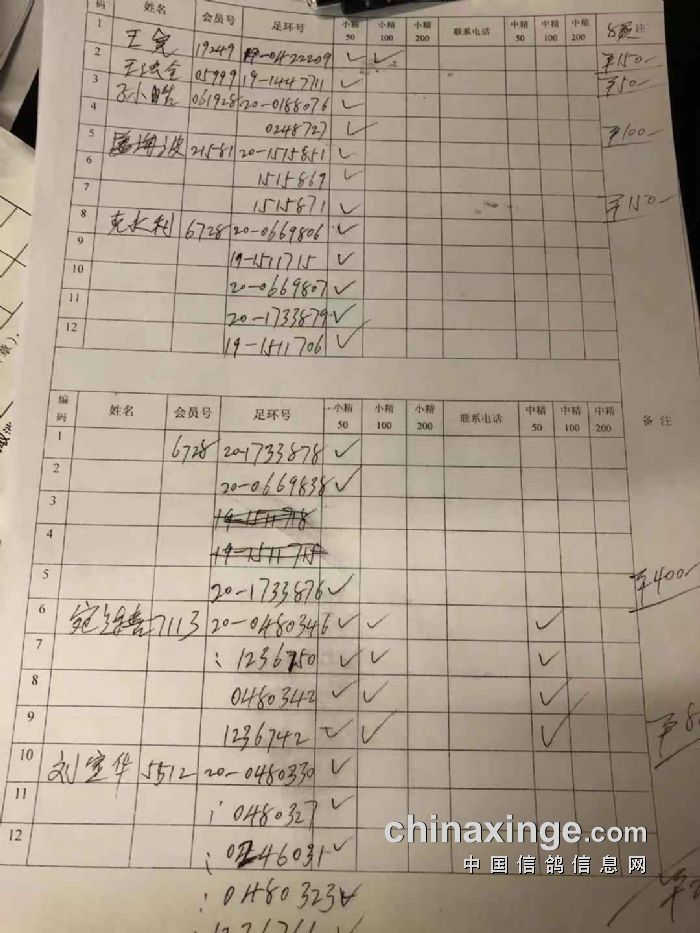 码 姓名 会员号 足环号 小精50 小精100 小精200 联系电话 中精50 中精100 中精200 注
1 王 19249 19-0422209 ✓ ✓ ¥150-
2 王 全 05999 19-1447711 ✓ ¥50-
3 孙小皓 061928 20-0188076 ✓
4 0248727 ✓ ¥100-
5 海波 21581 20-1515851 ✓
6 1515869 ✓
7 1515871 ✓ ¥150-
8 克水利 6728 20-0669806 ✓
9 19-1511715 ✓
10 20-0669807 ✓
11 20-1733879 ✓
12 19-1511706 ✓
编码 姓名 会员号 足环号 小精50 小精100 小精200 联系电话 中精50 中精100 中精200 备注
1 6728 20-1733878 ✓
2 20-0669838 ✓
3 19-1511718
4 19-1511715
5 20-1733876 ✓ ¥400-
6 7113 20-0480346 ✓ ✓ ✓
7 : 1236750 ✓ ✓ ✓
8 0480342 ✓ ✓ ✓
9 1236742 ✓ ✓ ✓
10 刘宝华 5512 20-0480330 ✓
11 : 0480327 ✓
12 : 0246031 ✓
: 0480323 ✓
章).
chinaxinge.com
中国信鸽信息网